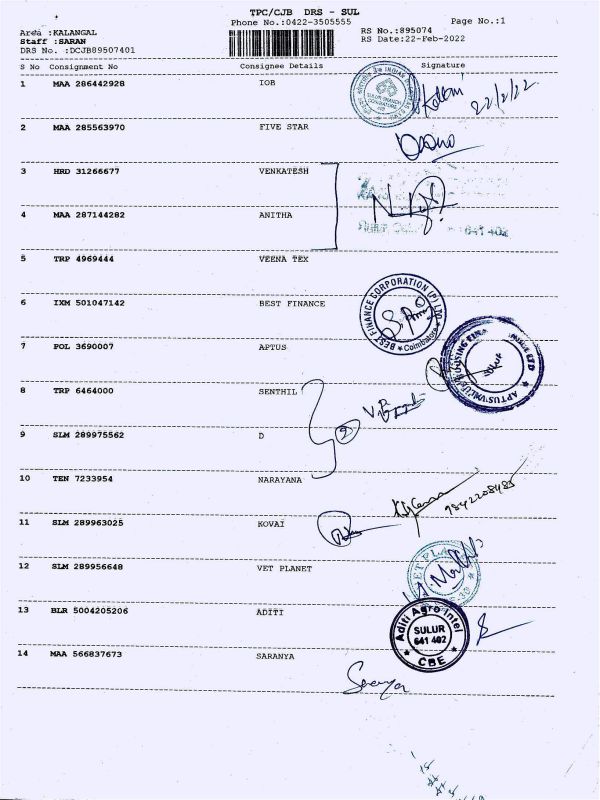 TPC/CJB DRS - SUL
Phone No.:0422-3505555
Page No.:1
Area :KALANGAL
Staff :SARAN
DRS No. :DCJB89507401
RS No.:895074
RS Date:22-Feb-2022
S No Consignment No Consignee Details Signature
1 MAA 286442928 IOB
SULUR BRANCH
COIMBATORE
22/2/22
2 MAA 285563970 FIVE STAR
3 HRD 31266677 VENKATESH
4 MAA 287144282 ANITHA
641 402
5 TRP 4969444 VEENA TEX
6 IXM 501047142 BEST FINANCE
BEST FINANCE CORPORATION (P) LTD.
Coimbatore
7 POL 3690007 APTUS
8 TRP 6464000 SENTHIL
9 SLM 289975562 D
2
10 TEN 7233954 NARAYANA
9842208485
11 SLM 289963025 KOVAI
12 SLM 289956648 VET PLANET
13 BLR 5004205206 ADITI
Aditi Agro Intel
SULUR
641 402
CBE
14 MAA 566837673 SARANYA
Saranya